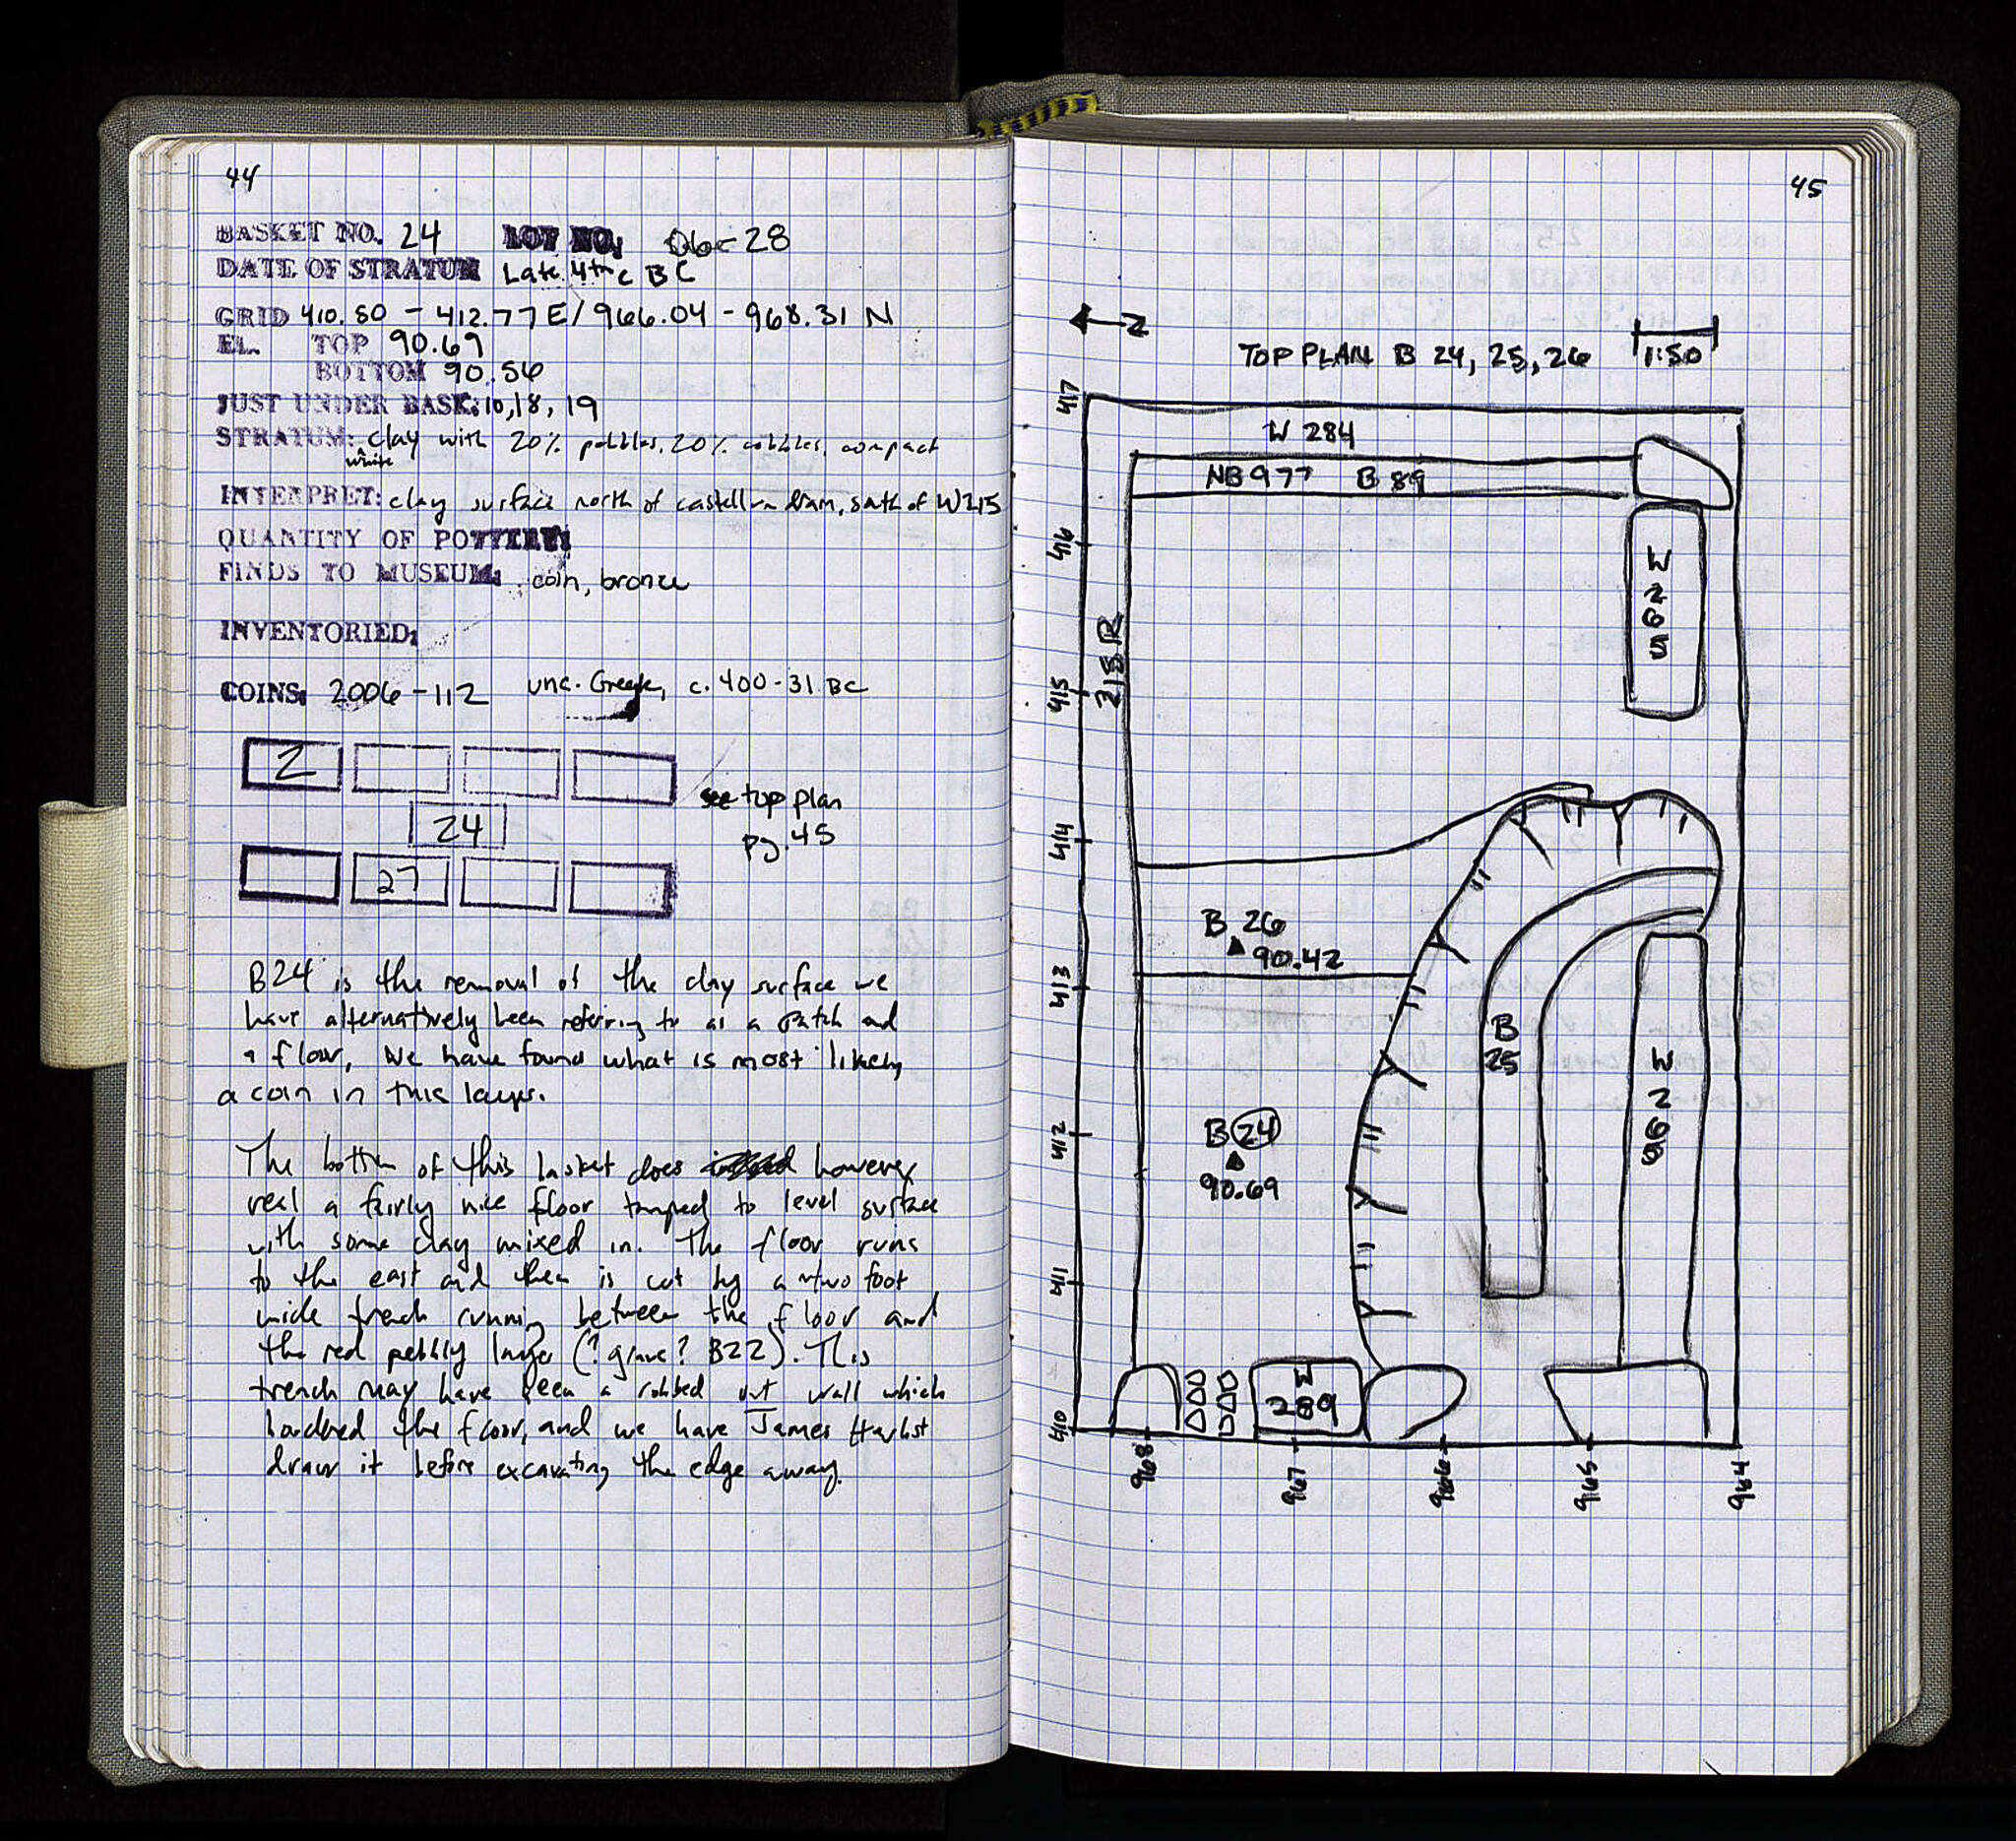 44
BASKET NO. 24 LOT NO.
DATE OF STRATUM Late 4th c BC
GRID 410.80 - 412.77 E / 966.04 - 968.31 N
EL. TOP 90.69
BOTTOM 90.56
JUST UNDER BASK: 10, 18, 19
STRATUM: clay with 20% pebbles, 20% cobbles, compact
white
INTERPRET: clay surface north of castellum dam, south of W215
QUANTITY OF POTTERY:
FINDS TO MUSEUM: coin, bronze
INVENTORIED:
COINS: 2006-112 unc. Greek, c. 400-31 BC
2
24
27
see top plan
pg. 45
B24 is the removal of the clay surface we
have alternatively been referring to as a patch and
a floor, We have found what is most likely
a coin in this layer.
The bottom of this basket does however
real a fairly nice floor tamped to level surface
with some clay mixed in. The floor runs
to the east and then is cut by a ~two foot
wide trench running between the floor and
the red pebbly layer (? grave? B22). This
trench may have been a robbed out wall which
bordered the floor, and we have James Herbst
draw it before excavating the edge away.
45
N
TOP PLAN B 24, 25, 26
1:50
417
W 284
NB 977 B 89
416
W 265
415
215R
414
B 26
90.42
413
B 25
W 265
412
B 24
90.69
411
W 289
410
968
967
966
965
964